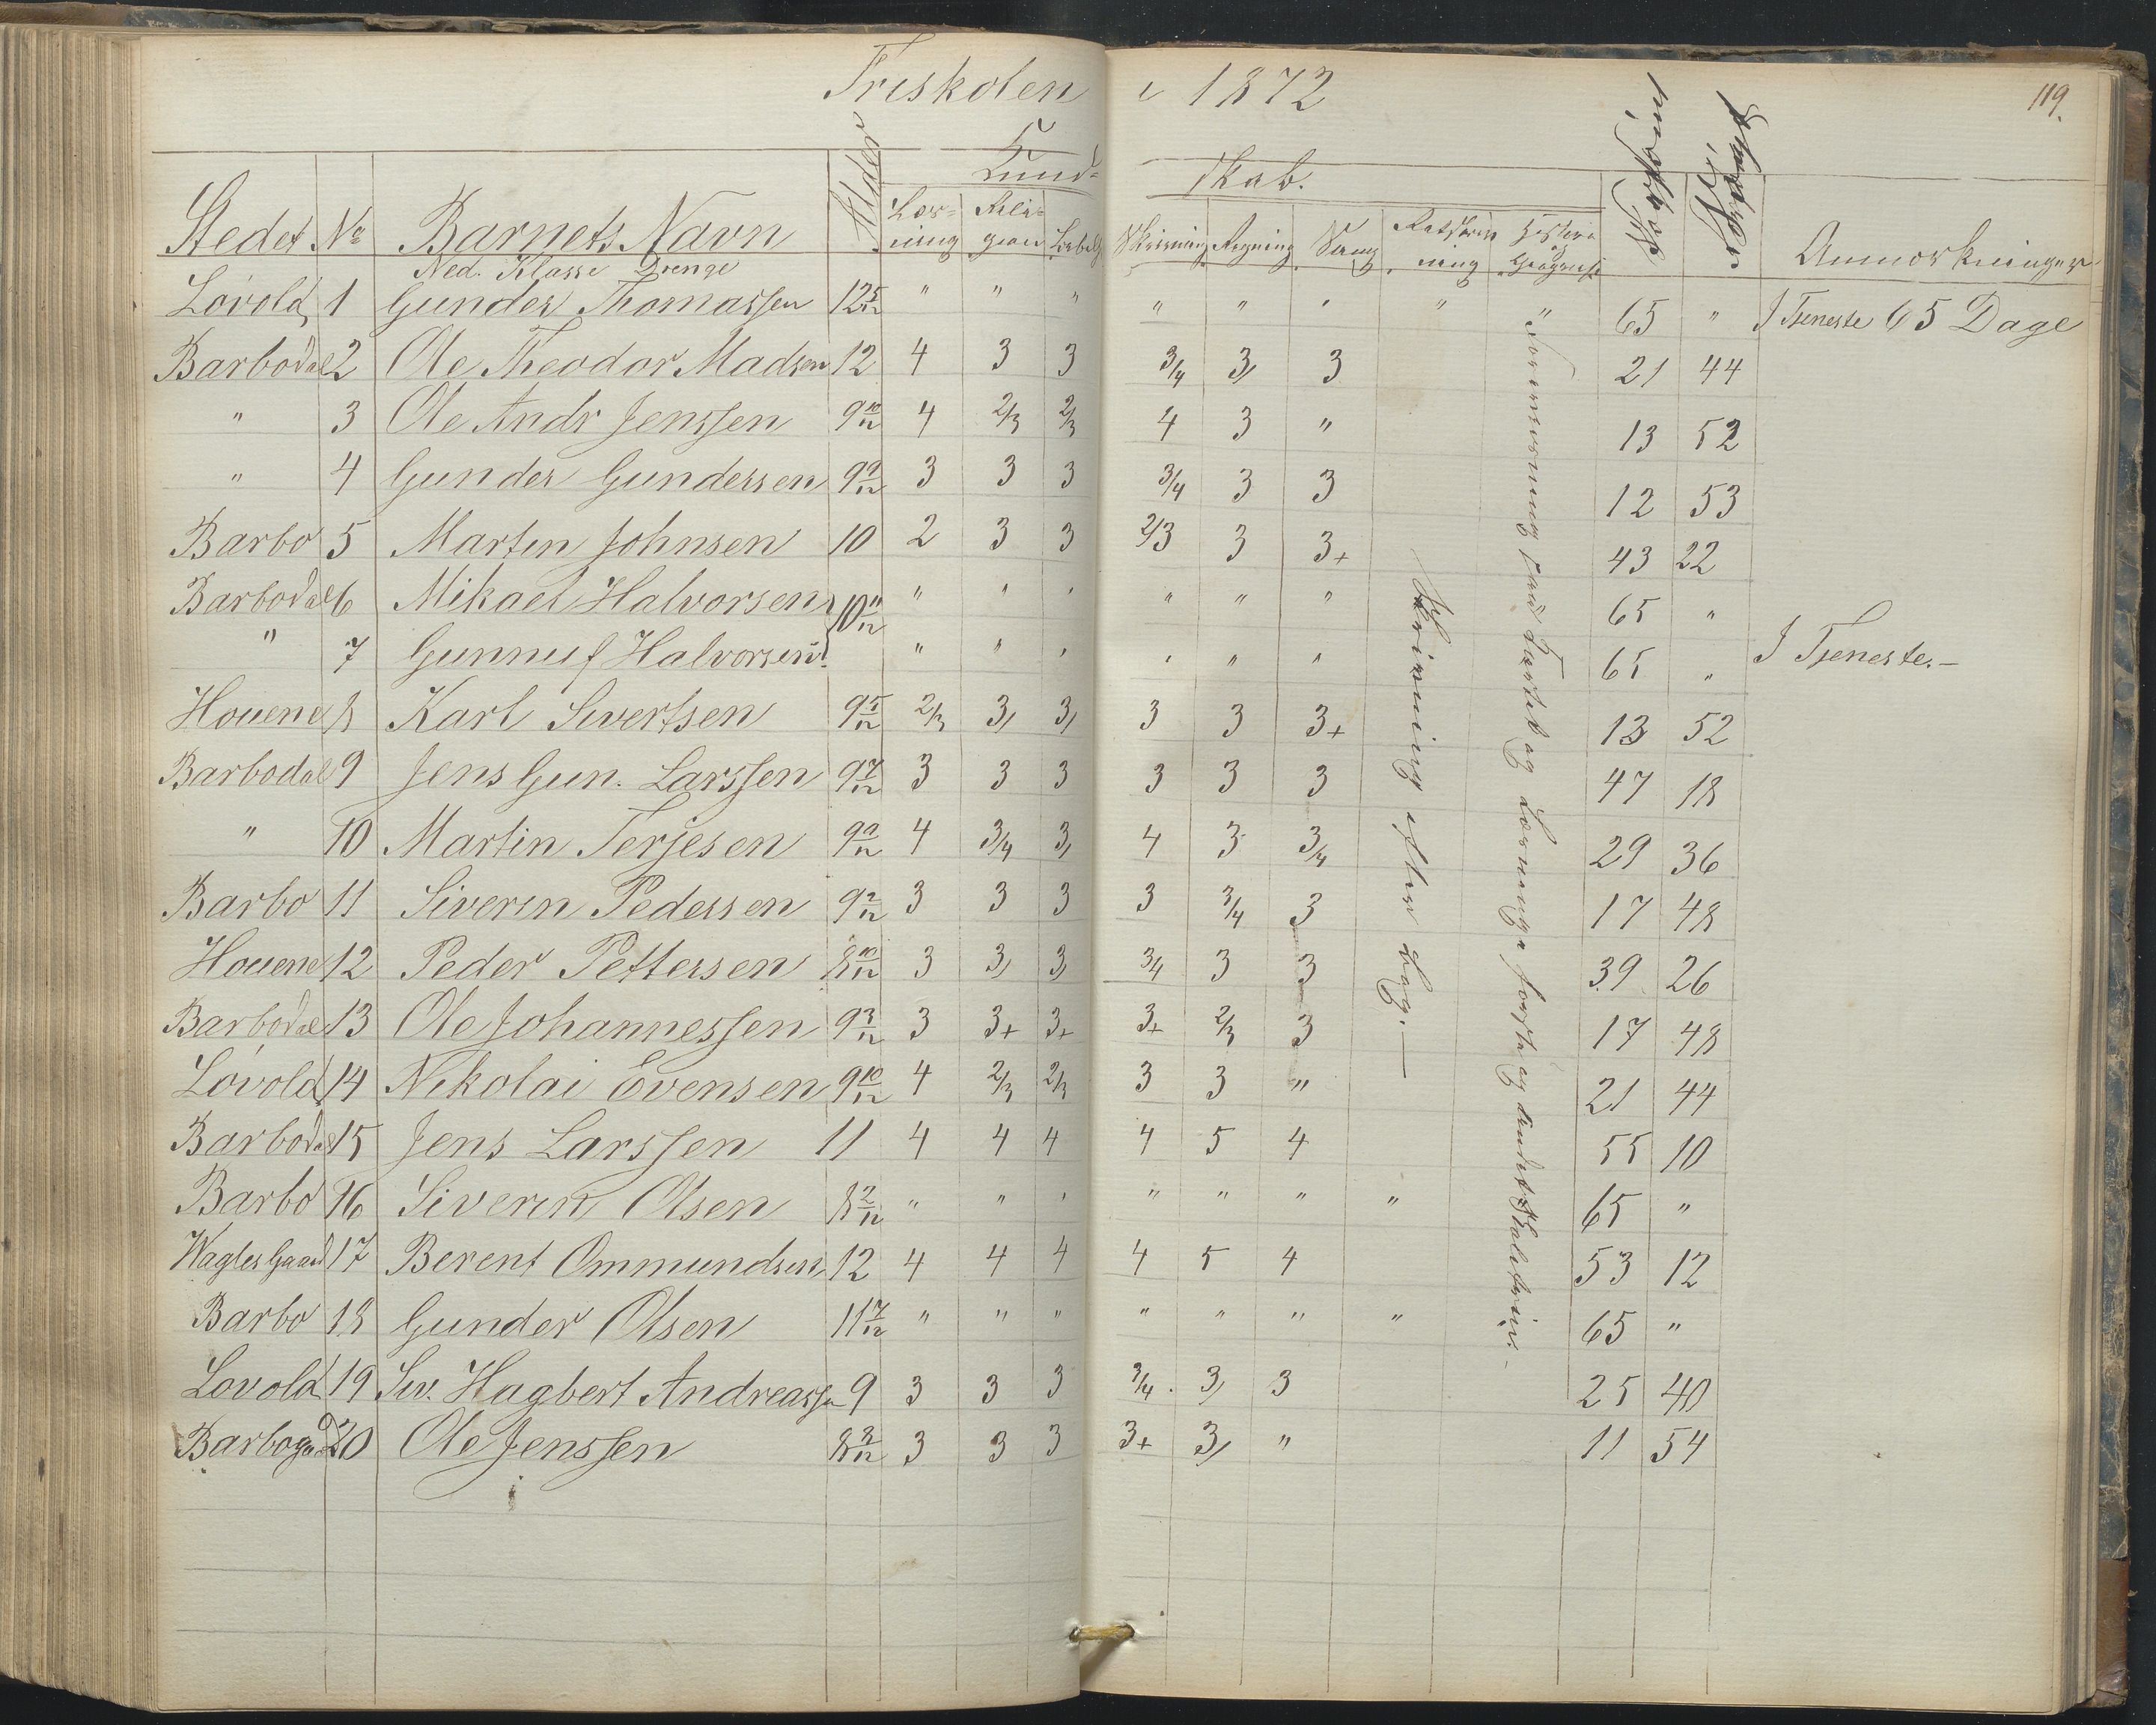 Friskolen i 1872
119.
Kund= skab.
Stedet No Barnets Navn Alder Læs= ning Reli= gion Skrivning Regning Sang Retskriv ning Historie og Geografi Forsømt Anmærkninger
Ned. Klasse Drenge
Lövold 1 Gunder Thomassen 12 5/12 " " " " " " " " 65 " I Tjeneste 65 Dage
Barbodal 2 Ole Theodor Madsen 12 4 3 3 3/4 3/ 3 21 44
" 3 Ole Andr Jenssen 9 10/12 4 2/3 2/3 4 3 " 13 52
" 4 Gunder Gundersen 9 9/12 3 3 3 3/4 3 3 12 53
Barbo 5 Martin Johnsen 10 2 3 3 2/3 3 3+ 43 22
Barbodal 6 Mikael Halvorsen 10 11/12 " " " " " " 65 "
" 7 Gunnuf Halvorsen " " " " " " 65 " I Tjeneste.–
Houene 8 Karl Sivertsen 9 5/12 2/3 3/ 3/ 3 3 3+ 13 52
Barbodal 9 Jens Gun. Larssen 9 7/12 3 3 3 3 3 3 47 18
" 10 Martin Terjesen 9 9/12 4 3/4 3/ 4 3 3/4 29 36
Barbo 11 Siverin Pedersen 9 2/12 3 3 3 3 3/4 3 17 48
Houene 12 Peder Pettersen 8 10/12 3 3/ 3/ 3/4 3 3 39 26
Barbodal 13 Ole Johannessen 9 3/12 3 3+ 3+ 3+ 2/3 3 17 48
Lövold 14 Nikolai Evensen 9 10/12 4 2/3 2/3 3 3 " 21 44
Barbodal 15 Jens Larssen 11 4 4 4 4 5 4 55 10
Barbo 16 Siverin Olsen 8 2/12 " " " " " " " 65 "
Wagles Gaard 17 Berent Ommundsen 12 4 4 4 4 5 4 53 12
Barbo 18 Gunder Olsen 11 7/12 " " " " " " " 65 "
Lovold 19 Siv. Hagbert Andreassen 9 3 3 3 3/4 3/ 3 25 40
Barbogd 20 Ole Jenssen 8 8/12 3 3 3 3+ 3/ " 11 54
Skrivning efter Bog.–
og Læsningen første og andet Skoletrin.–